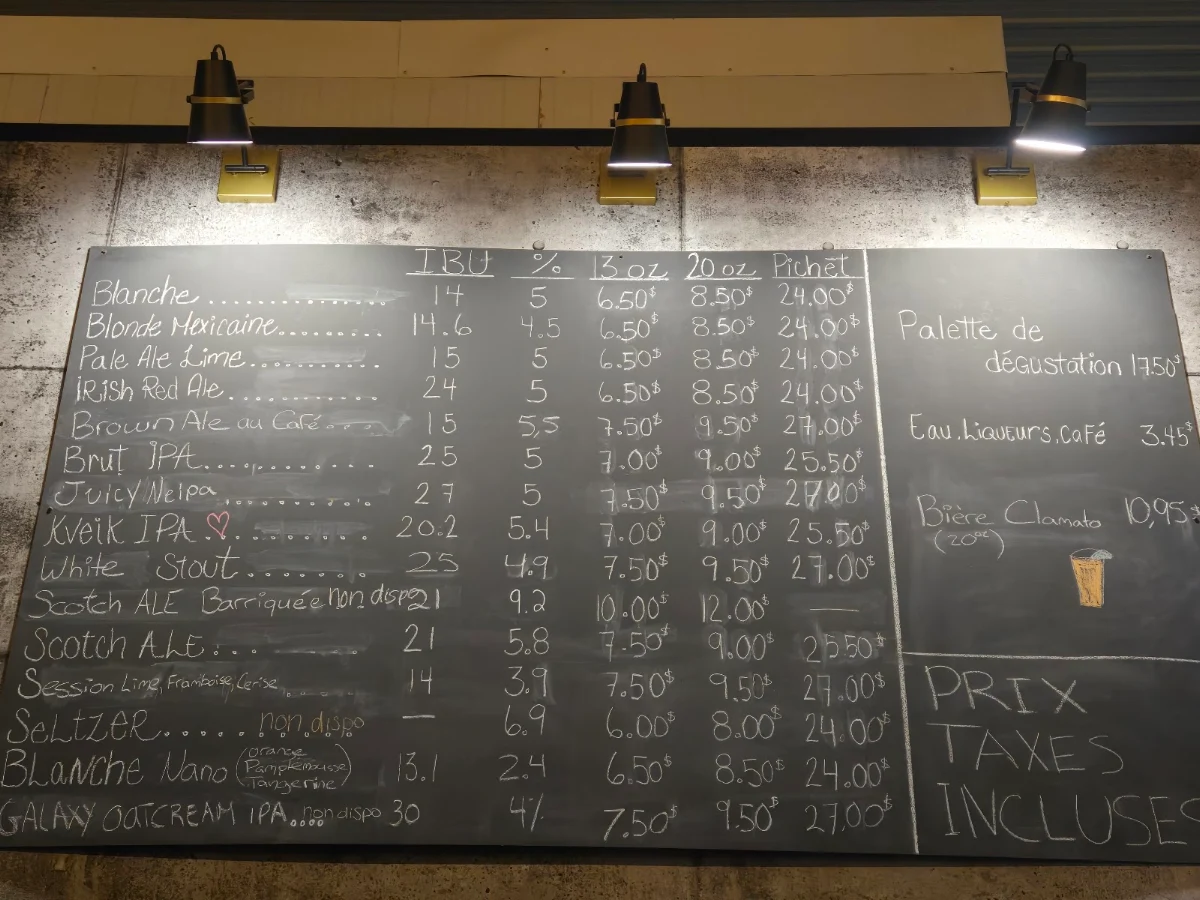 IBU % 13 oz 20 oz Pichet
Blanche .............. 14 5 6.50$ 8.50$ 24.00$
Blonde Mexicaine........ 14.6 4.5 6.50$ 8.50$ 24.00$
Pale Ale Lime........... 15 5 6.50$ 8.50$ 24.00$
IRish Red Ale............ 24 5 6.50$ 8.50$ 24.00$
Brown Ale au Café.... 15 5,5 7.50$ 9.50$ 27.00$
Brut IPA............. 25 5 7.00$ 9.00$ 25.50$
Juicy Neipa ........... 27 5 7.50$ 9.50$ 27.00$
Kveik IPA ♡.......... 20.2 5.4 7.00$ 9.00$ 25.50$
White Stout......... 25 4.9 7.50$ 9.50$ 27.00$
Scotch ALE Barriquée non dispo 21 9.2 10.00$ 12.00$ —
Scotch ALE... . 21 5.8 7.50$ 9.00$ 25.50$
Session Lime, Framboise, Cerise.... 14 3.9 7.50$ 9.50$ 27.00$
SeLTZER....... non dispo — 6.9 6.00$ 8.00$ 24.00$
BLaNCHE Nano (orange Pamplemousse Tangerine) 13.1 2.4 6.50$ 8.50$ 24.00$
GALAXY OATCREAM IPA.... non dispo 30 4% 7.50$ 9.50$ 27.00$
Palette de
dégustation 17.50$
Eau, Liqueurs, Café 3.45$
Bière Clamato 10,95$
(20oz)
PRIX
TAXES
INCLUSES